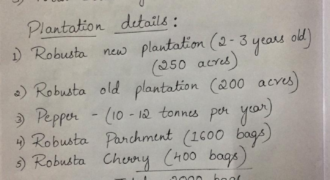 Plantation details:
1) Robusta new plantation (2-3 years old)
(250 acres)
2) Robusta old plantation (200 acres)
3) Pepper - (10-12 tonnes per year)
4) Robusta Parchment (1600 bags)
5) Robusta Cherry (400 bags)